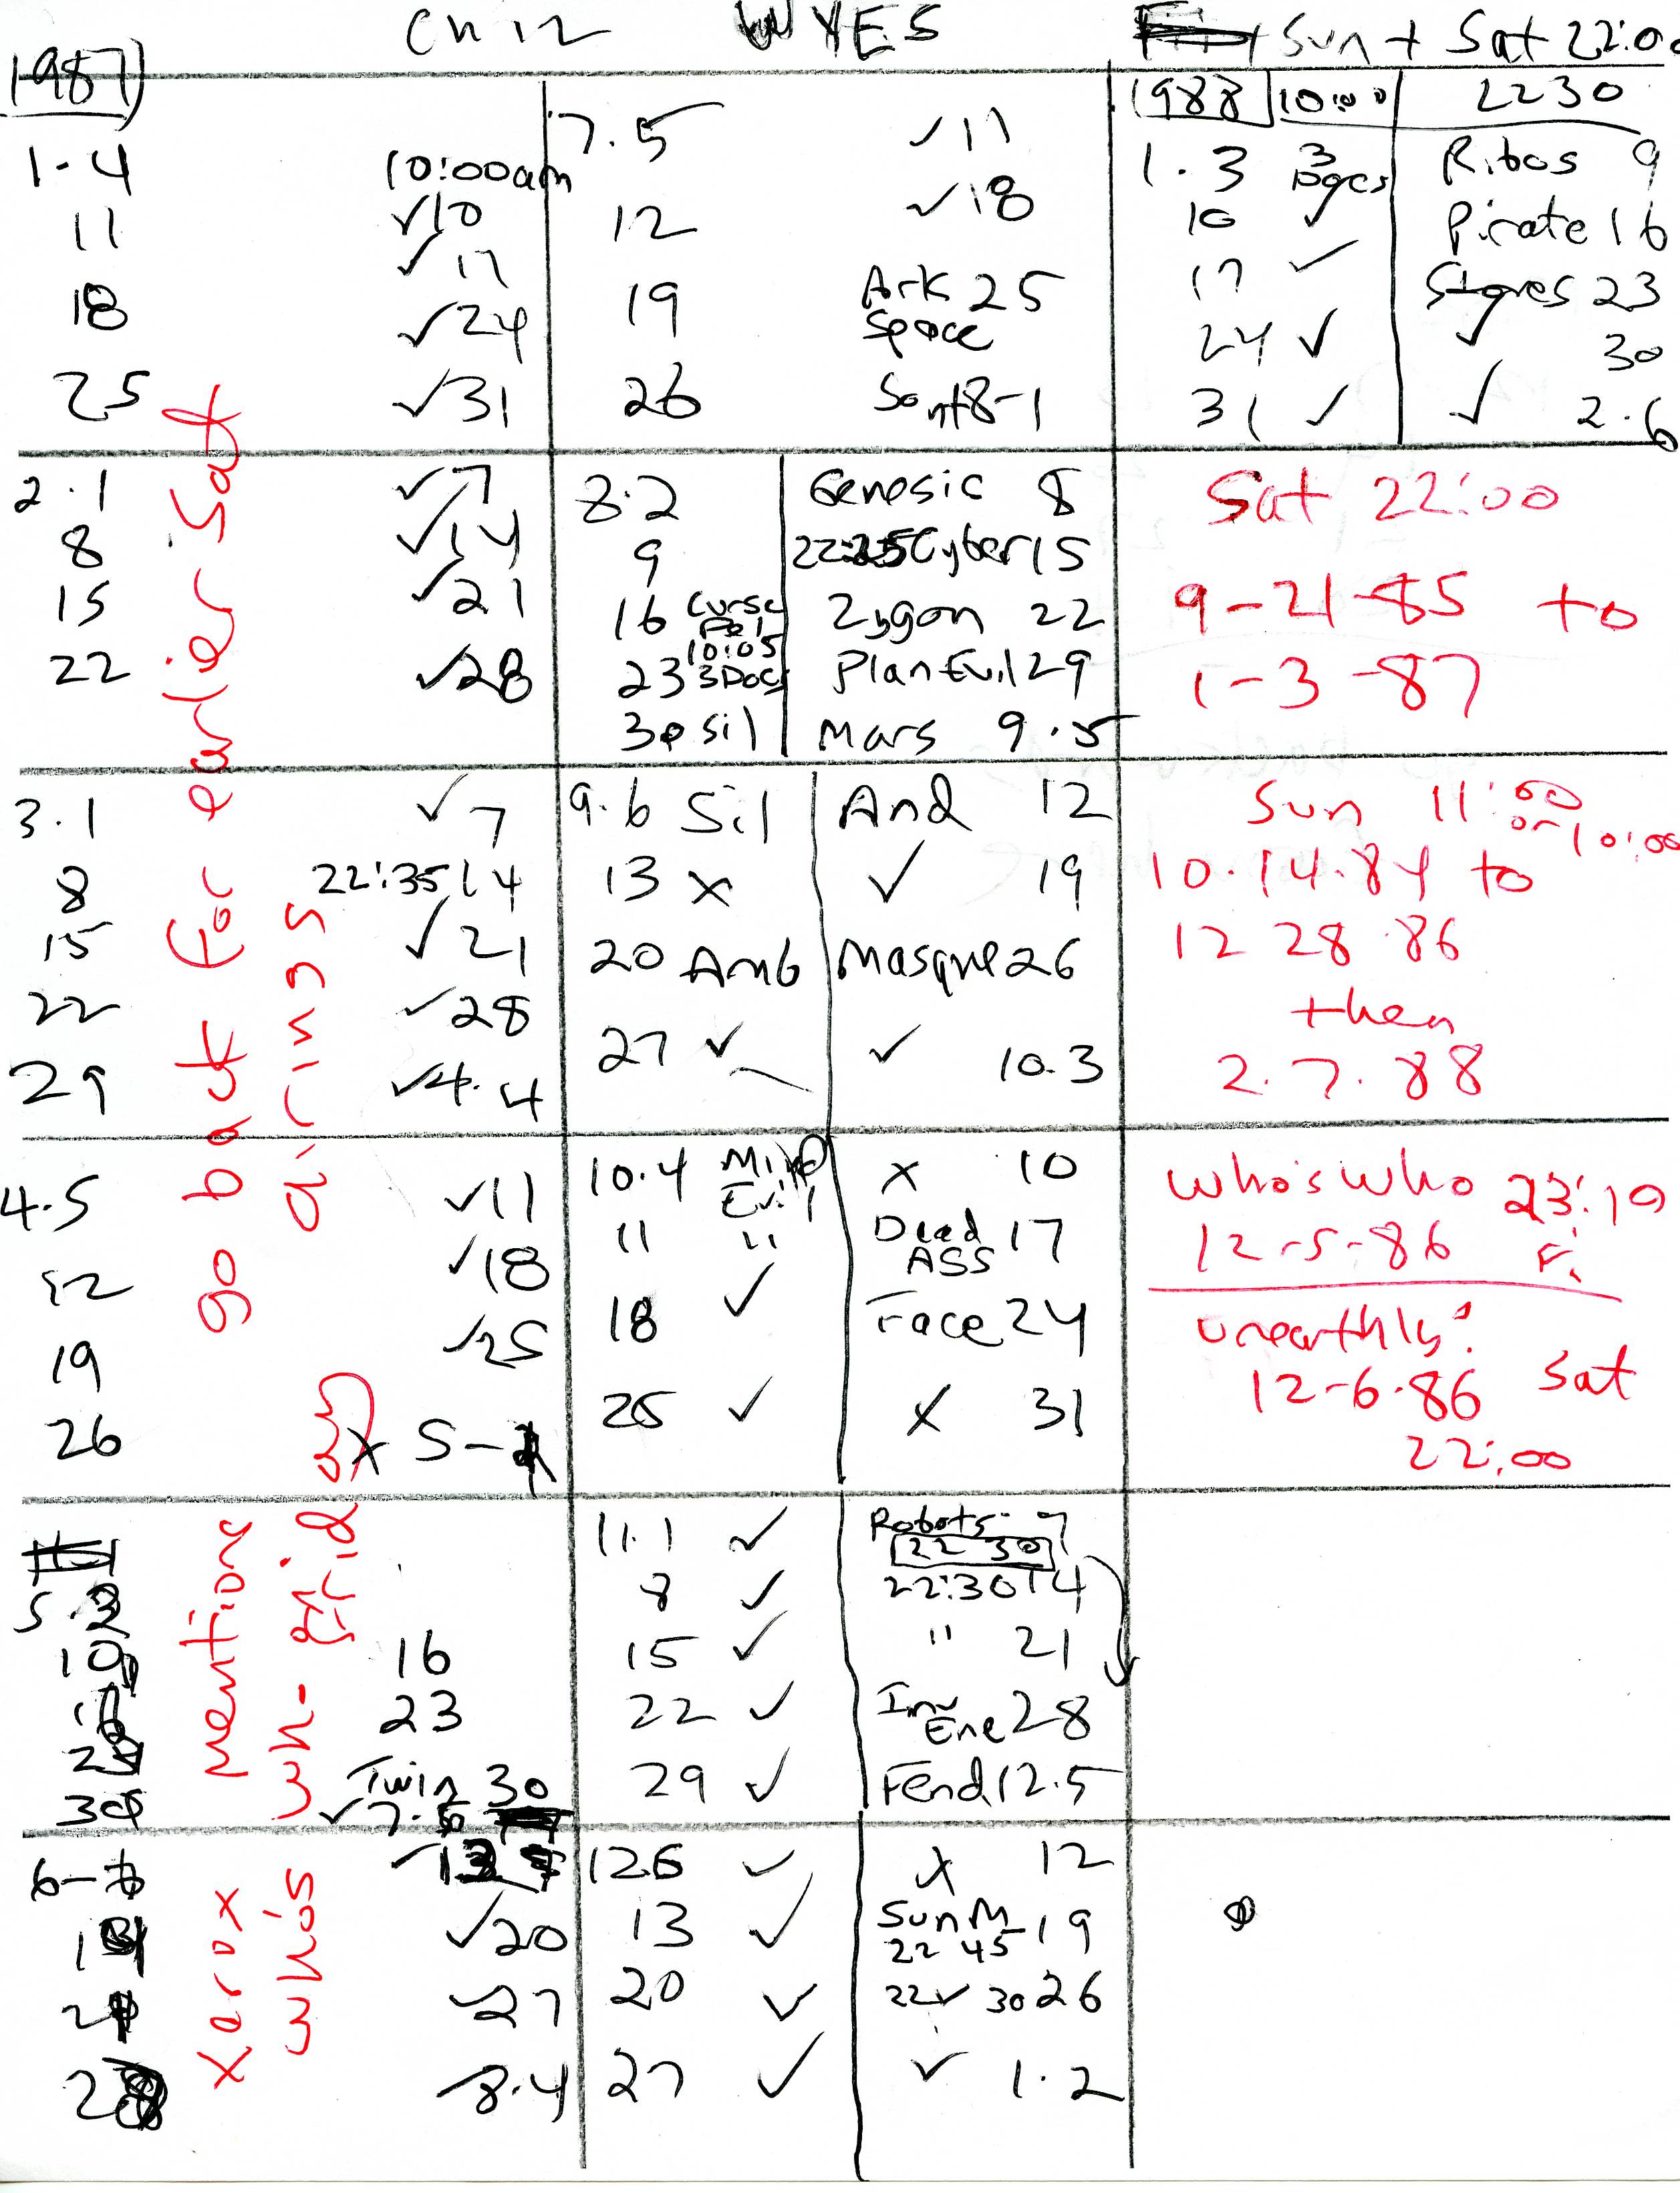 Ch 12 WYES Sun + Sat 22:00
1987
1-4
10:00am
11 ✓10
✓17
18 ✓24
25 ✓31
7.5 ✓11
12 ✓18
19 Ark 25
Space
26 Sont 8-1
1988 10:00 2230
1.3 3 Docs Ribos 9
10 ✓ Pirate 16
17 ✓ Stones 23
24 ✓ ✓ 30
31 ✓ ✓ 2.6
2.1 ✓7
8 ✓14
15 ✓21
22 ✓28
8.2 Genesis 8
9 22:25 Cyber 15
16 Curse Pel Zygon 22
10:05
23 3Doc Plan Evil 29
30 Sil Mars 9.5
Sat 22:00
9-21-85 to
1-3-87
3.1 ✓7
8 22:35 14
15 ✓21
22 ✓28
29 ✓4.4
9.6 Sil And 12
13 x ✓ 19
20 Amb Masque 26
27 ✓ ✓ 10.3
Sun 11:00
or 10:00
10.14.84 to
12 28 86
then
2.7.88
4.5 ✓11
12 ✓18
19 ✓25
26 x 5-
10.4 Mind Evil x 10
11 " Dead ASS 17
18 ✓ Face 24
25 ✓ x 31
Who's Who 23:10
12-5-86 Fi
Unearthly:
12-6-86 Sat
22:00
go back for earlier Sat
airings
5.3
10
16
23
Twin 30
✓7.6
11.1 ✓ Robots 7
22 30
8 ✓ 22:30 14
15 ✓ " 21
22 ✓ Inv Ene 28
29 ✓ Fend 12.5
6-
✓20
✓27
28 ✓8.4
126 ✓ x 12
13 ✓ Sun M 19
22 45
20 ✓ 22 ✓ 30 26
27 ✓ ✓ 1.2
Xerox mentions
who's wh- grid